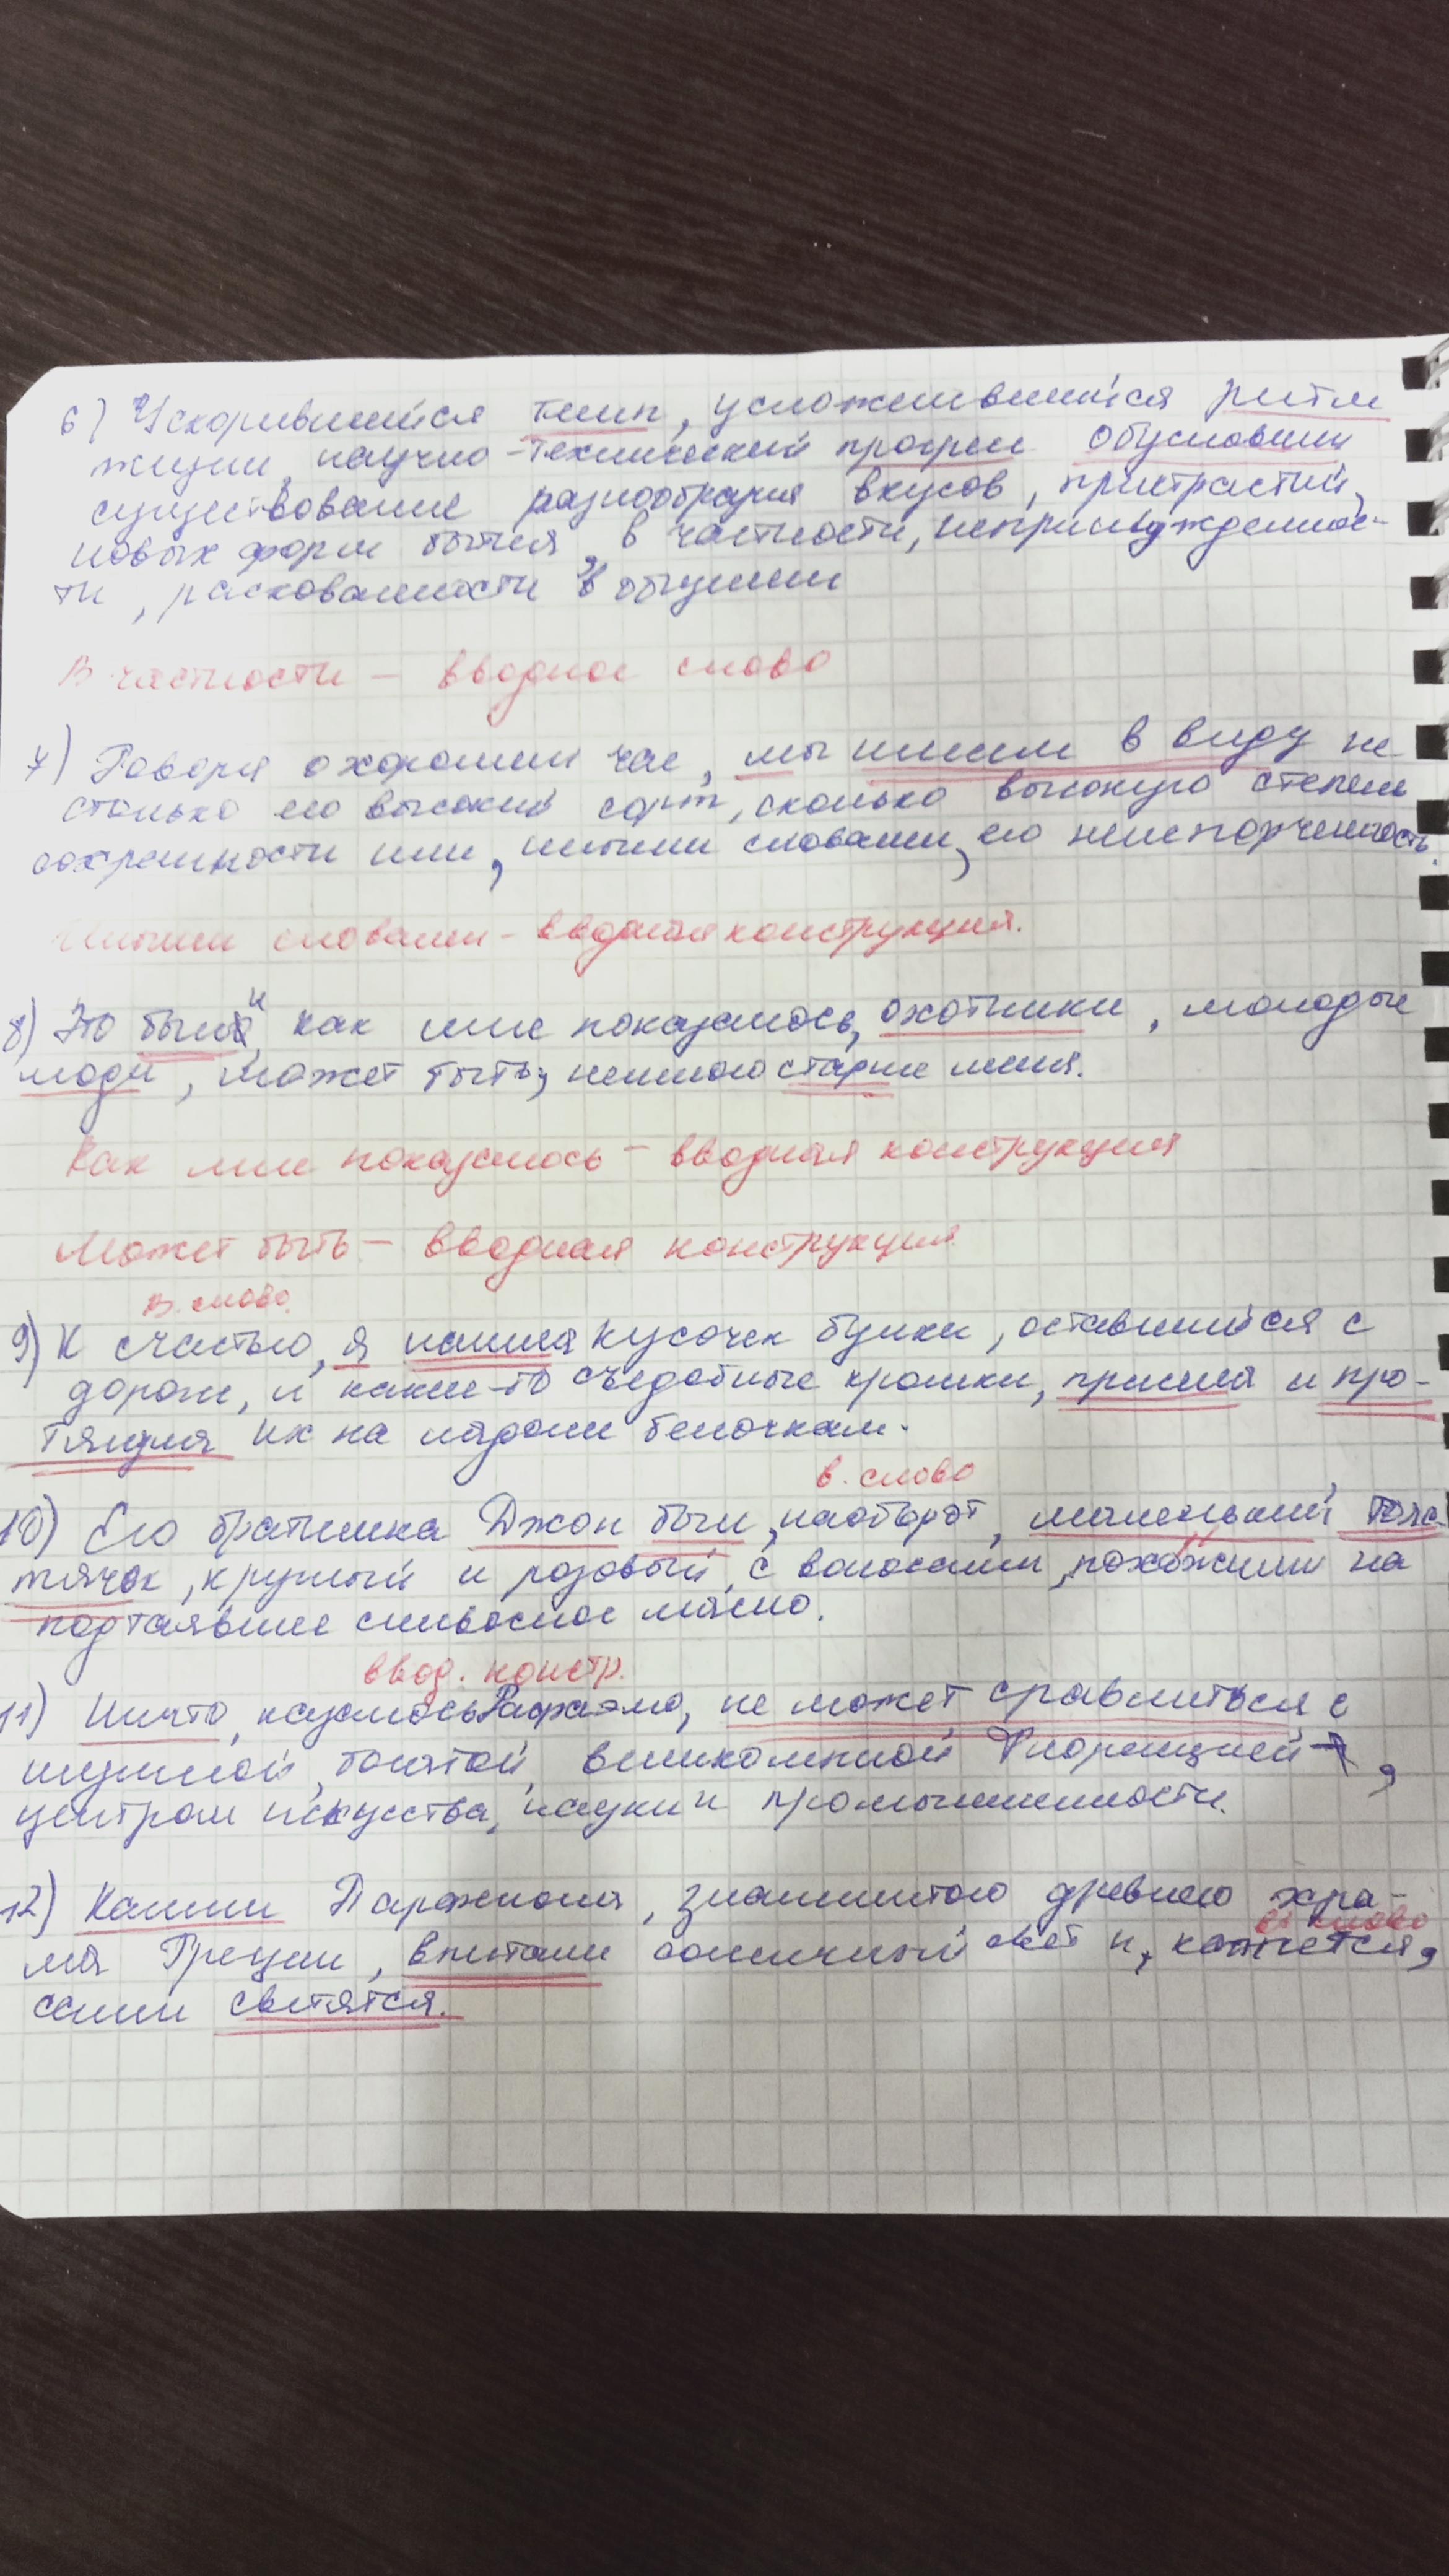 6) Ускорившийся темп, усложнившийся ритм
жизни, научно-технический прогресс обусловили
существование разнообразия вкусов, пристрастий,
новых форм бытия, в частности, непринуждённос-
ти, раскованности в общении
В частности – вводное слово
7) Говоря о хорошем чае, мы имеем в виду не
столько его высокий сорт, сколько высокую степень
сохранности или, иными словами, его неиспорченность.
Иными словами – вводная конструкция.
8) Это были, как мне показалось, охотники, молодые
люди, может быть, немного старше меня.
Как мне показалось – вводная конструкция
Может быть – вводная конструкция
в. слово
9) К счастью, я нашла кусочек булки, оставшийся с
дороги, и какие-то съедобные крошки, присела и про-
тянула их на ладони белочкам.
в. слово
10) Его братишка Джон был, наоборот, маленький толс-
тячок, круглый и розовый, с волосами, похожими на
подтаявшее сливочное масло.
ввод. констр.
11) Ничто, казалось Рафаэлю, не может сравниться с
шумной, богатой, великолепной Флоренцией,
центром искусства, науки и промышленности.
12) Камни Парфенона, знаменитого древнего хра-
в. слово
ма Греции, впитали солнечный свет и, кажется,
сами светятся.